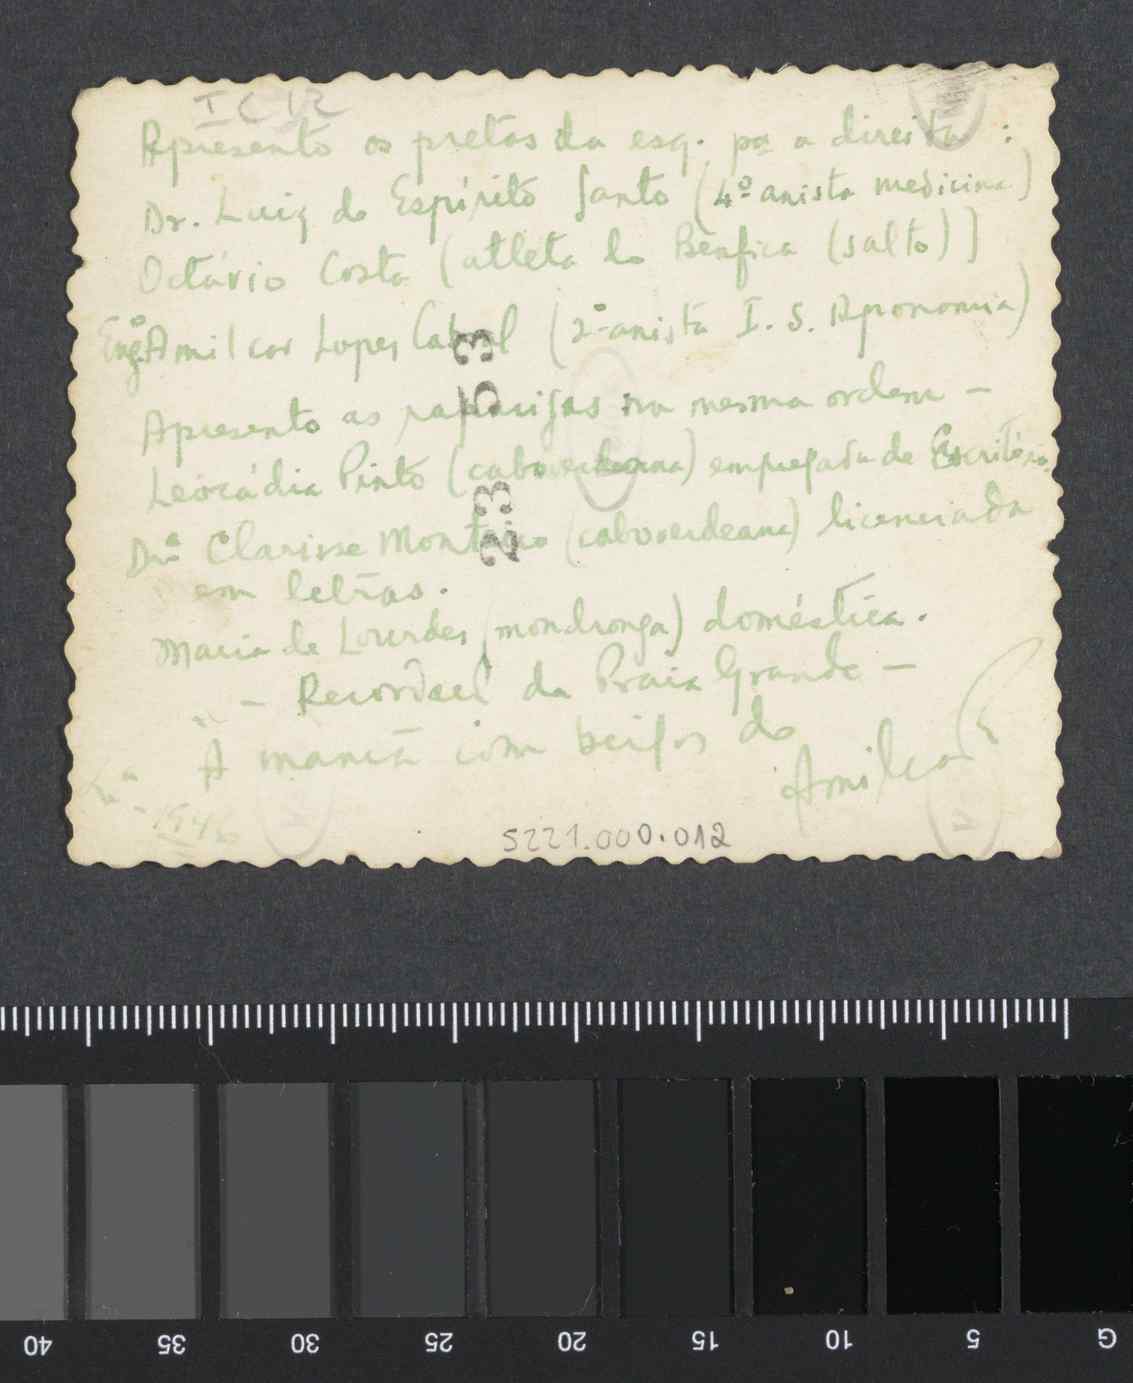 I C 12
Apresento os pretos da esq. pa a direita :
Dr. Luiz do Espírito Santo (4º anista medicina)
Octávio Costa (atleta do Benfica (salto))
Engº Amilcar Lopes Cabral (2º anista I. S. Agronomia)
Apresento as raparigas na mesma ordem —
Leocádia Pinto (caboverdeana) empregada de Escritório
Drª Clarisse Monteiro (caboverdeana) licenciada
em letras.
Maria de Lourdes (mondronga) doméstica.
— Recordaçl da Praia Grande —
À mamã com beijos do
Amilcar
Lxª - 1946
5221.000.012
23 53
40 35 30 25 20 15 10 5 G